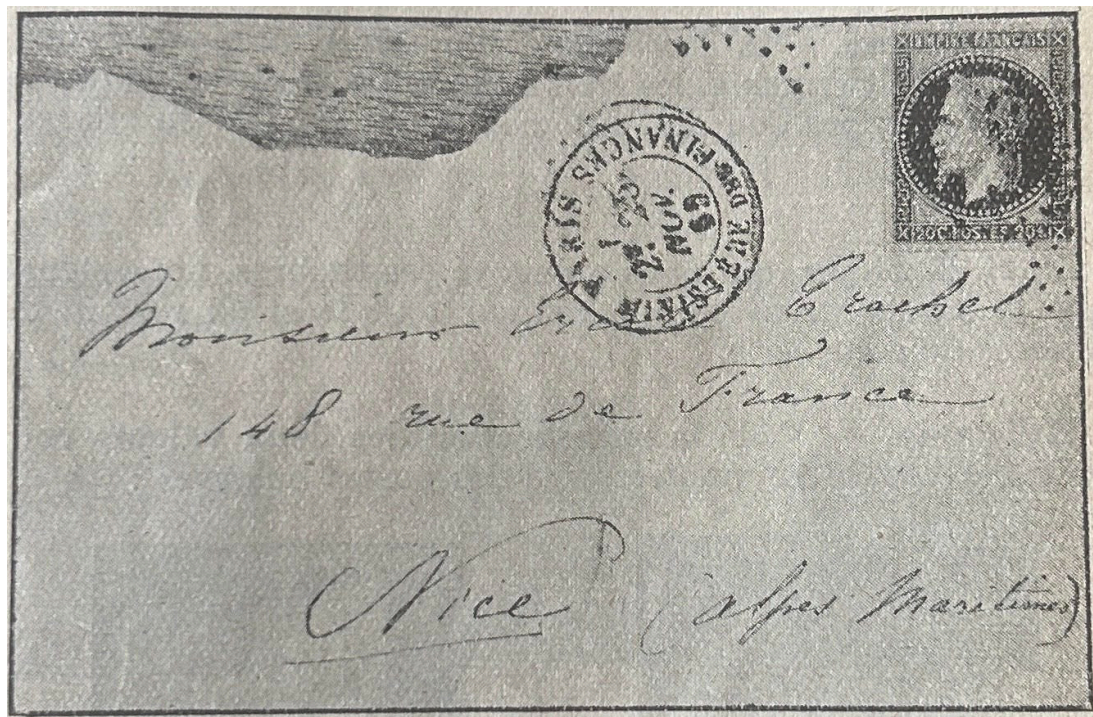 EMPIRE FRANÇAIS
20 C POSTES 20 C
PARIS
MINISTERE DES FINANCES
Monsieur Trachel
148 rue de France
Nice (Alpes Maritimes)